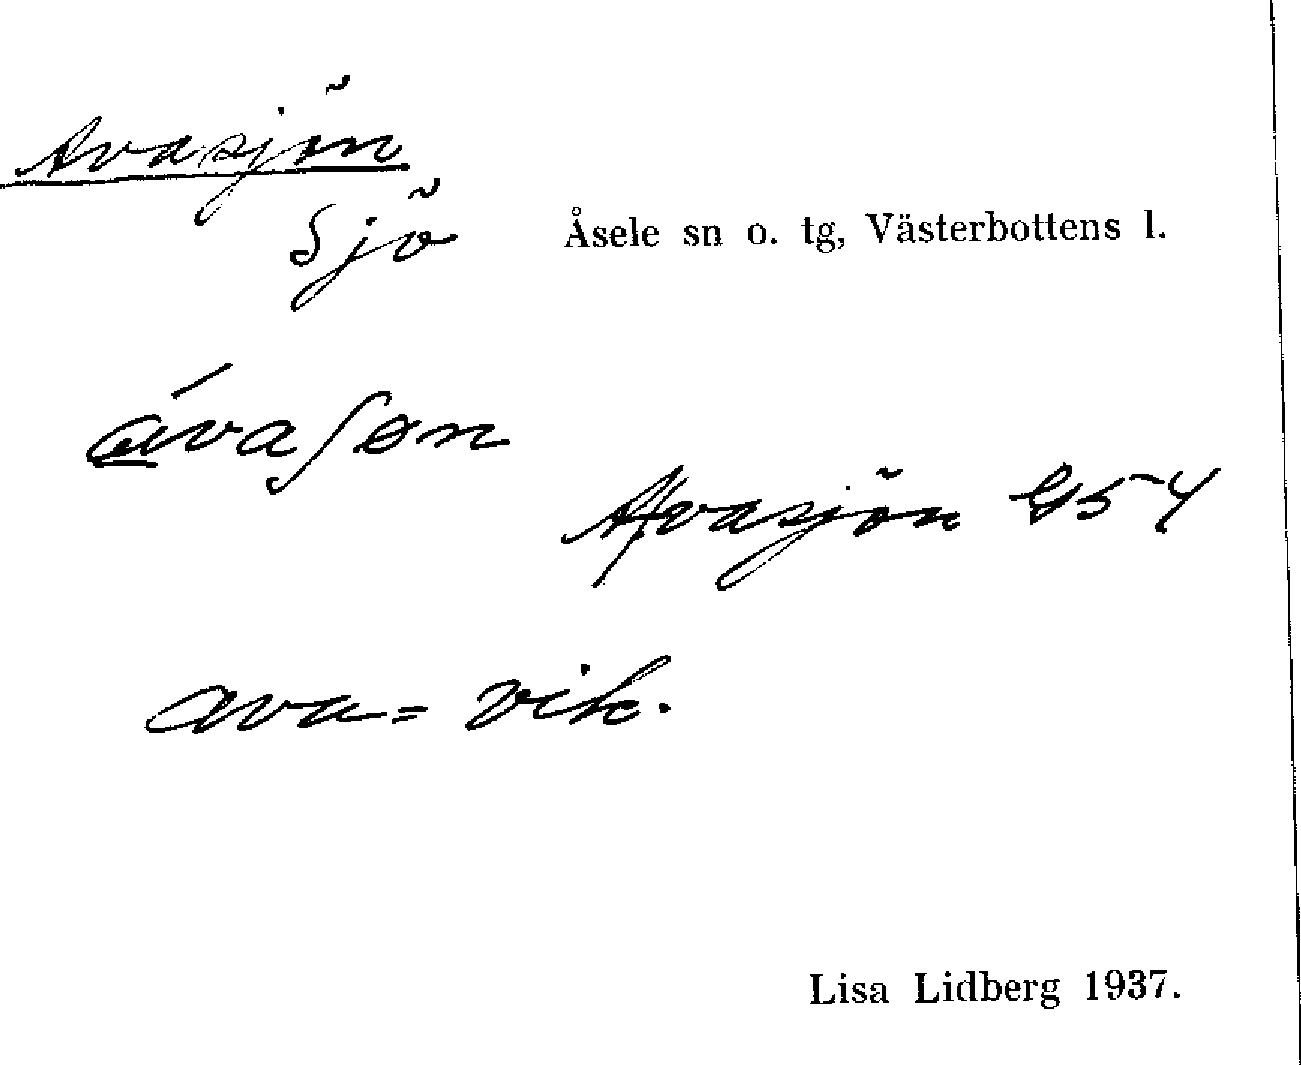 Avasjön
Sjö
Åsele sn o. tg, Västerbottens l.
ávaʃøn
Avasjön G54
ava = vik.
Lisa Lidberg 1937.